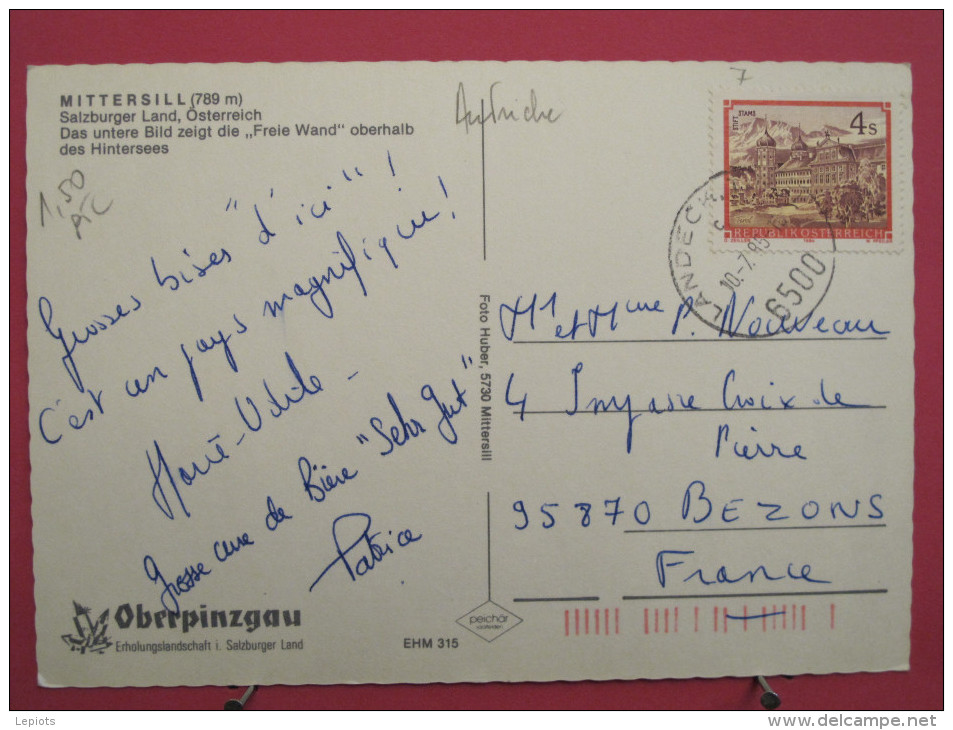 MITTERSILL (789 m)
Salzburger Land, Österreich
Das untere Bild zeigt die „Freie Wand" oberhalb
des Hintersees
Autriche
7
1,50
Grosses bises "d'ici"!
C'est un pays magnifique!
Grosse de Bière "Sehr Gut"
Patrice
Oberpinzgau
Erholungslandschaft i. Salzburger Land
EHM 315
Foto Huber, 5730 Mittersill
peichär
STIFT STAMS
4S
REPUBLIK ÖSTERREICH
LANDECK
10.-7.95
6500
Mr et Mme P. Nouveau
4 Impasse Croix de
Pierre
95870 BEZONS
France
Lepiots
delcampe.net